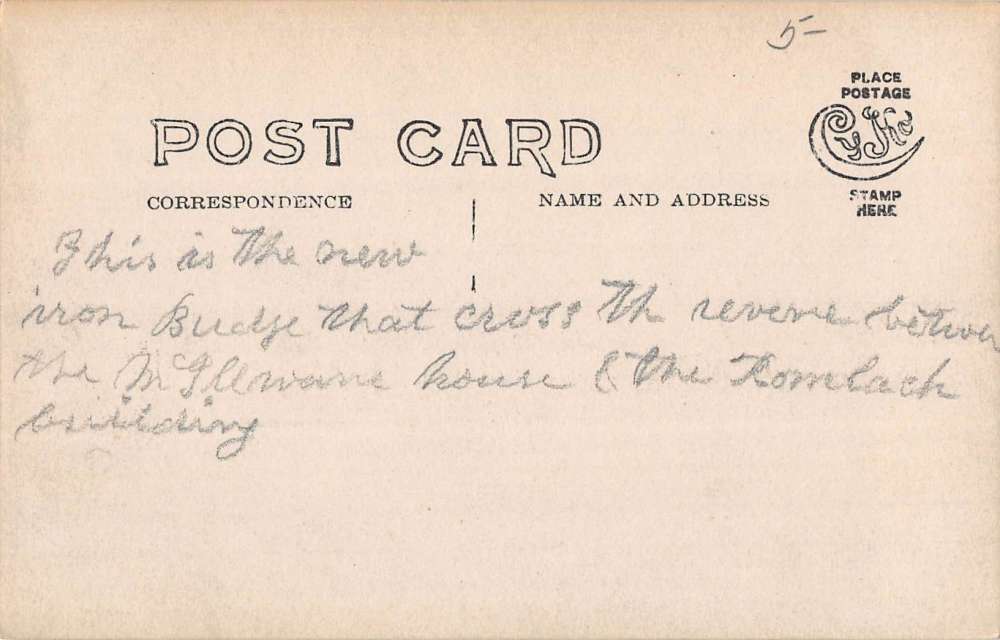 5-
PLACE
POSTAGE
CyKo
STAMP
HERE
POST CARD
CORRESPONDENCE
NAME AND ADDRESS
This is the new
iron Bridge that cross th reverie betwen
the house & the Romback
building